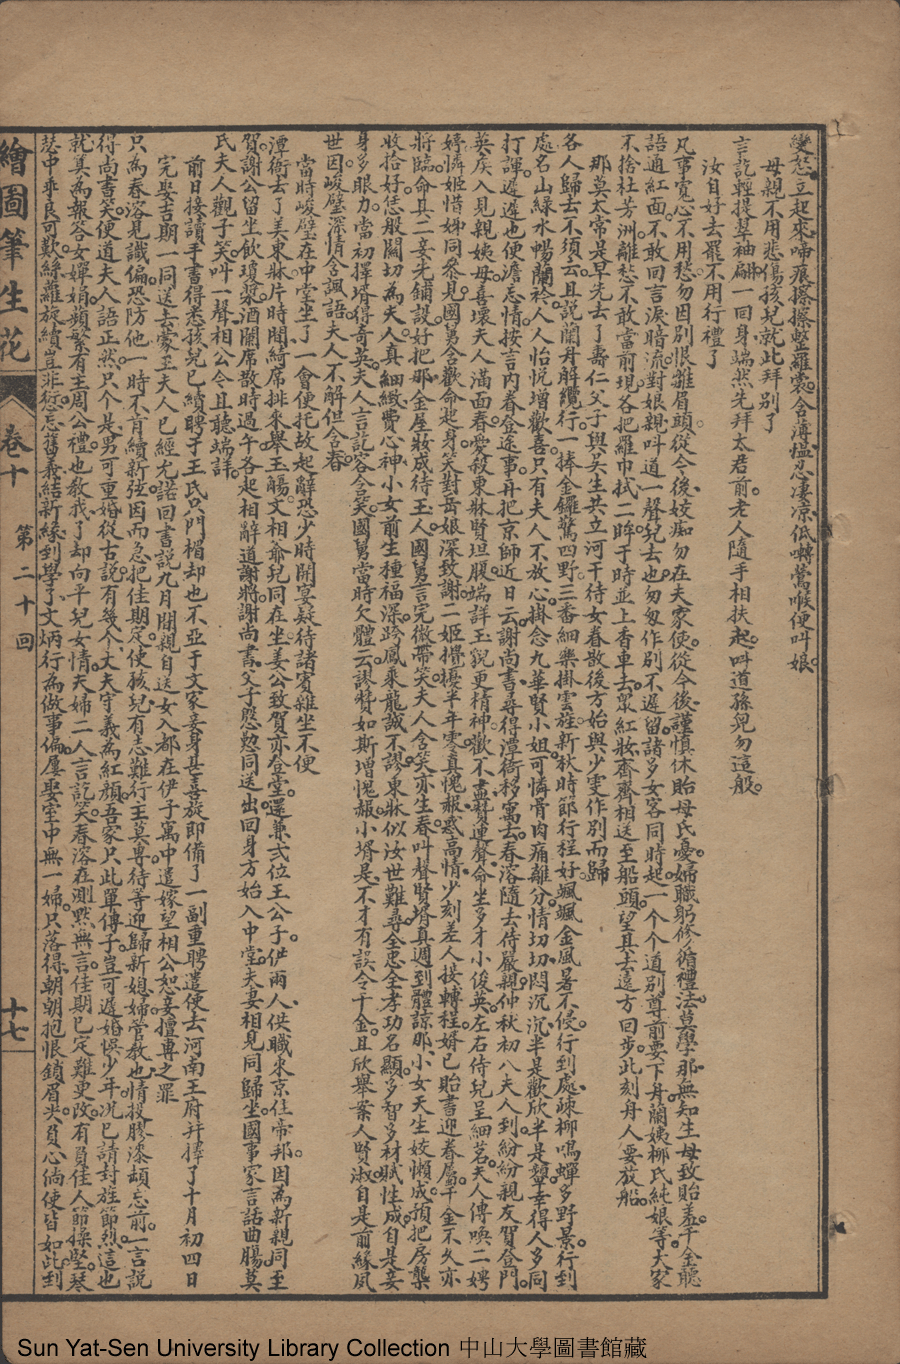 孌怒立起來啼痕擦擦整羅裳含薄搵忍凄凉低囀鶯喉便叫娘
母親不用悲傷孩兒就此拜別了
言訖輕提翠袖翩一回身端然先拜太君前老人隨手相扶起叫道孫兒勿這般
汝自好去罷不用行禮了
凡事寬心不用愁勿因別恨皺眉頭從今後姣痴勿在夫家使從今後謹慎休貽母氏憂婦職躬修循禮法莫學那無知生母致貽羞千金聽
語通紅面不敢回言淚暗流對娘親叫道一聲兒去也匆匆作別不遲留諸多女客同時起一个个道別尊前要下舟蘭姨柳氏純娘等大家
不捨杜芳洲離愁不敢當前現各把羅巾拭二眸于時並上香車去衆紅妝齊齊相送至船頭望其去遠方回步此刻舟人要放船
那莫太常是早先去了壽仁父子與吳生共立河干待女眷散後方始與少雯作別而歸
各人歸去不須云且説蘭舟解纜行一捧金鑼驚四野三番細樂掛雲旌新秋時節行程好颯颯金風暑不侵行到處疎柳鳴蟬多野景行到
處名山綠水暢蘭襟人人怡悦增歡喜只有夫人不放心掛念九華賢小姐可憐骨肉痛離分情切切悶沉沉半是歡欣半是顰幸得人多同
打諢遲遲也便漸忘情按言內眷登途事再把京師近日云謝尚書尋得潭衙移寓去春溶隨去侍嚴親仲秋初八夫人到紛紛親友賀登門
英疾入見親姨母喜壞夫人滿面春愛殺東牀賢坦腹端詳玉貌更精神歡不盡贊連聲命坐多才小俊英左右侍兒呈細茗夫人傳喚二娉
婷憐姬惜姊同叅見國舅含歡命起身笑對岳娘深致謝二姬攪擾半年零真愧赧感高情少刻差人接轉程婿已貽書迎眷屬千金不久亦
將臨命其二妾先鋪設好把那金屋妝成待玉人國舅言完微帶笑夫人含笑亦生春叫聲賢婿真週到體諒那小女天生姣懶成預把房櫳
收拾好恁般關切為夫人真細緻費心神小女前生種福深跨鳳乘龍誠不謬東牀似汝世難尋全忠全孝功名顯多智多材賦性成自是妾
身多眼力當初擇壻得奇英夫人言訖容含笑國舅當時欠體云謬贊如斯增愧赧小壻是不才有誤令千金且欣舉案人賢淑自是前緣夙
世因峻壁深情含諷語夫人不解但含春
當時峻壁在中堂坐了一會便托故起辭恐少時開宴疑待諸賓雜坐不便
潭衙去了美東牀片時間綺席排來舉玉觴文相爺兒同在坐姜公致賀亦登堂還兼弍位王公子伊兩人供職來京住帝邦因為新親同至
賀謝公留坐飲瓊漿酒闌席散時過午各起相辭道謝將謝尚書父子慇懃同送出回身方始入中堂夫妻相見同歸坐國事家言話曲腸莫
氏夫人觀子笑叫一聲相公令且聽端詳
前日接讀手書得悉孩兒已續聘于王氏只門楣却也不亞于文家妾身甚喜旋即備了一副重聘遣使去河南王府并擇了十月初四日
完娶吉期一同送去蒙王夫人已經尤諾回書説九月間親自送女入都在伊子寓中遣嫁望相公恕妾擅專之罪
只為春溶見識偏恐防他一時不肯續新弦因而急把佳期定使孩兒有志難行主莫專待等迎歸新媳婦管教也情投膠漆頓忘前一言説
得尚書笑便道夫人語正然只个是男可重婚從古説有幾个丈夫守義為紅顔吾家只此單傳子豈可遲婚悮少年况已請封旌節烈這也
就真為報答女嬋娟頻繁有主周公禮也教我了却向平兒女情夫婦二人言訖笑春溶在測黙無言佳期已定難更改有負佳人節操堅琴
瑟中乖良可歎絲蘿旋續豈非愆忘舊義結新緣到學了文炳行為做事偏屢娶室中無一婦只落得朝朝抱恨鎖眉尖負心倘使皆如此到
繪圖筆生花
卷十
第二十回
十七
Sun Yat-Sen University Library Collection 中山大學圖書館藏